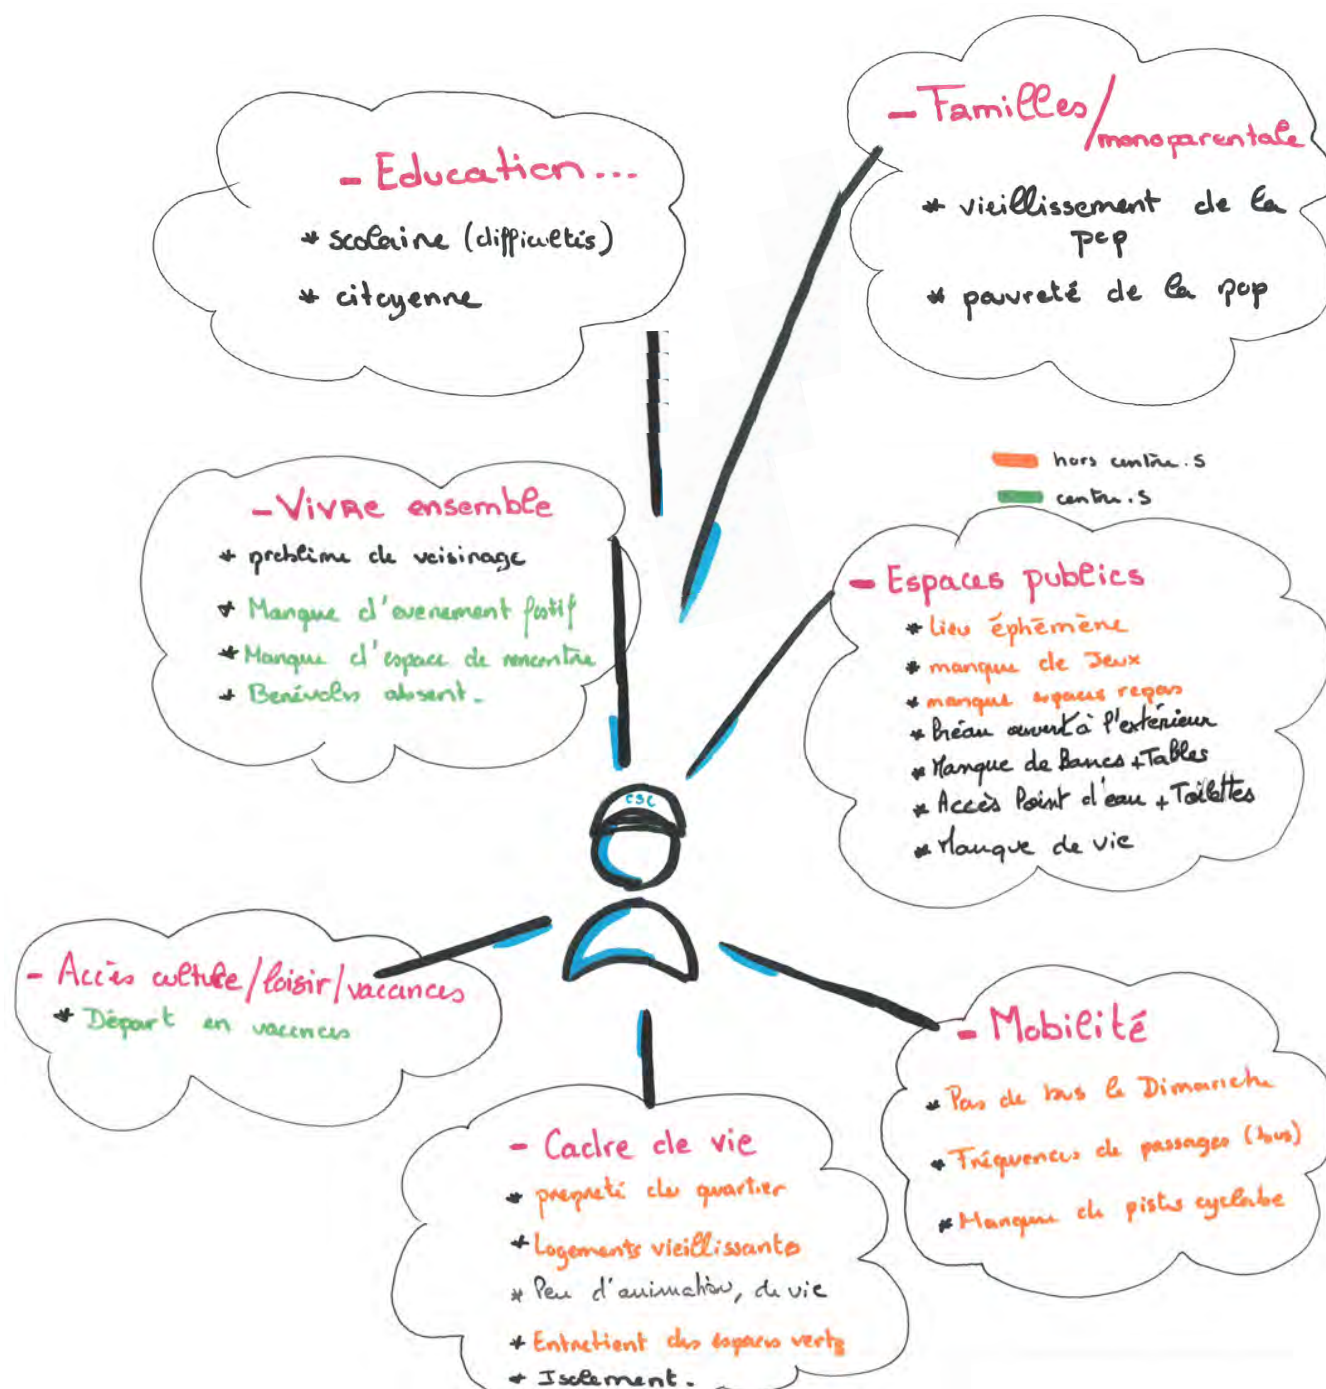 - Education...
* scolaire (difficultés)
* citoyenne
- Familles/monoparentale
* vieillissement de la
pop
* pauvreté de la pop
hors centre.S
centre.S
- Vivre ensemble
* problème de voisinage
* Manque d'evenement festif
* Manque d'espace de rencontre
* Benévoles absent.
- Espaces publics
* lieu éphémène
* manque de Jeux
* manque espaces repas
* Préau ouvert à l'extérieur
* Manque de Bancs + Tables
* Accès Point d'eau + Toilettes
* Manque de vie
CSC
- Accès culture/loisir/vacances
* Départ en vacances
- Mobilité
* Pas de bus le Dimanche
* Fréquences de passages (bus)
* Manque de pistes cyclabe
- Cadre de vie
* propreté du quartier
* Logements vieillissants
* Peu d'animation, de vie
* Entretient des espaces verts
* Isolement.